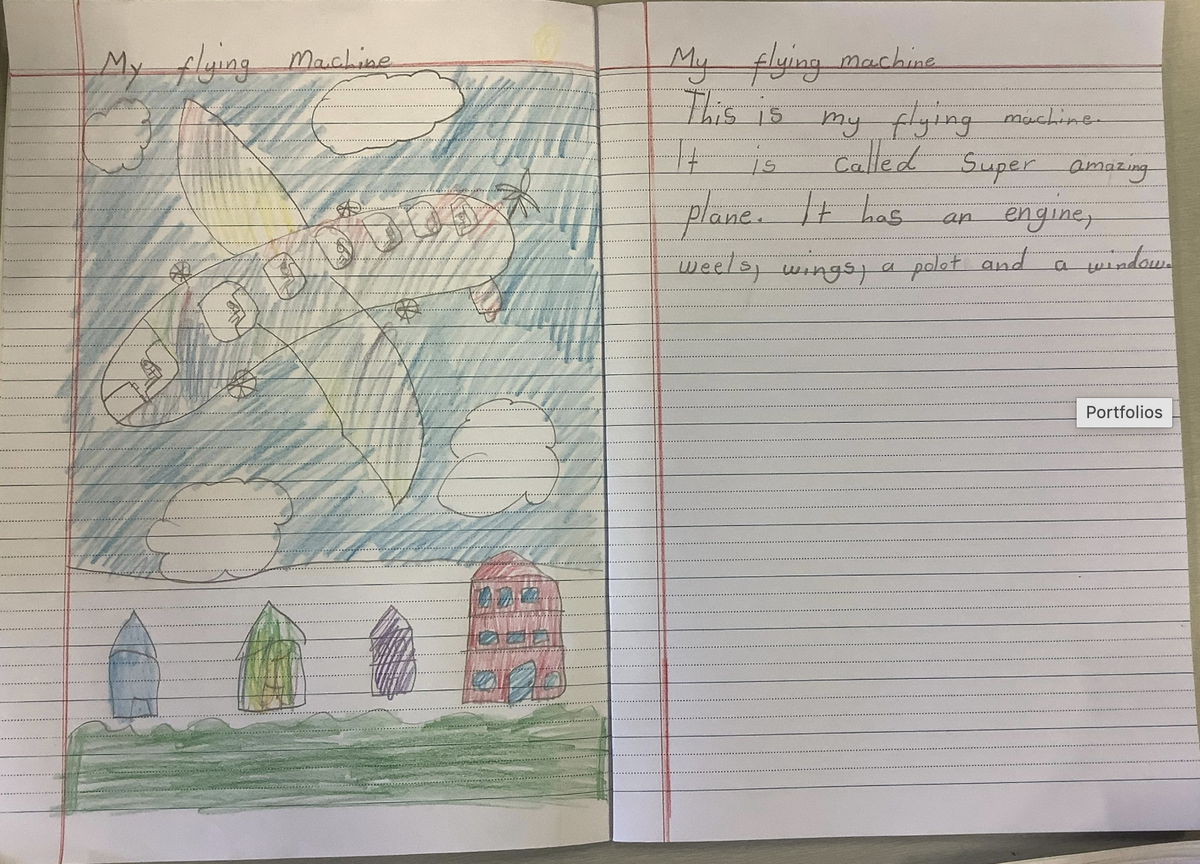 My flying Machine
My flying machine
This is my flying machine.
It is called Super amazing
plane. It has an engine,
weels, wings, a polot and a window.
Portfolios